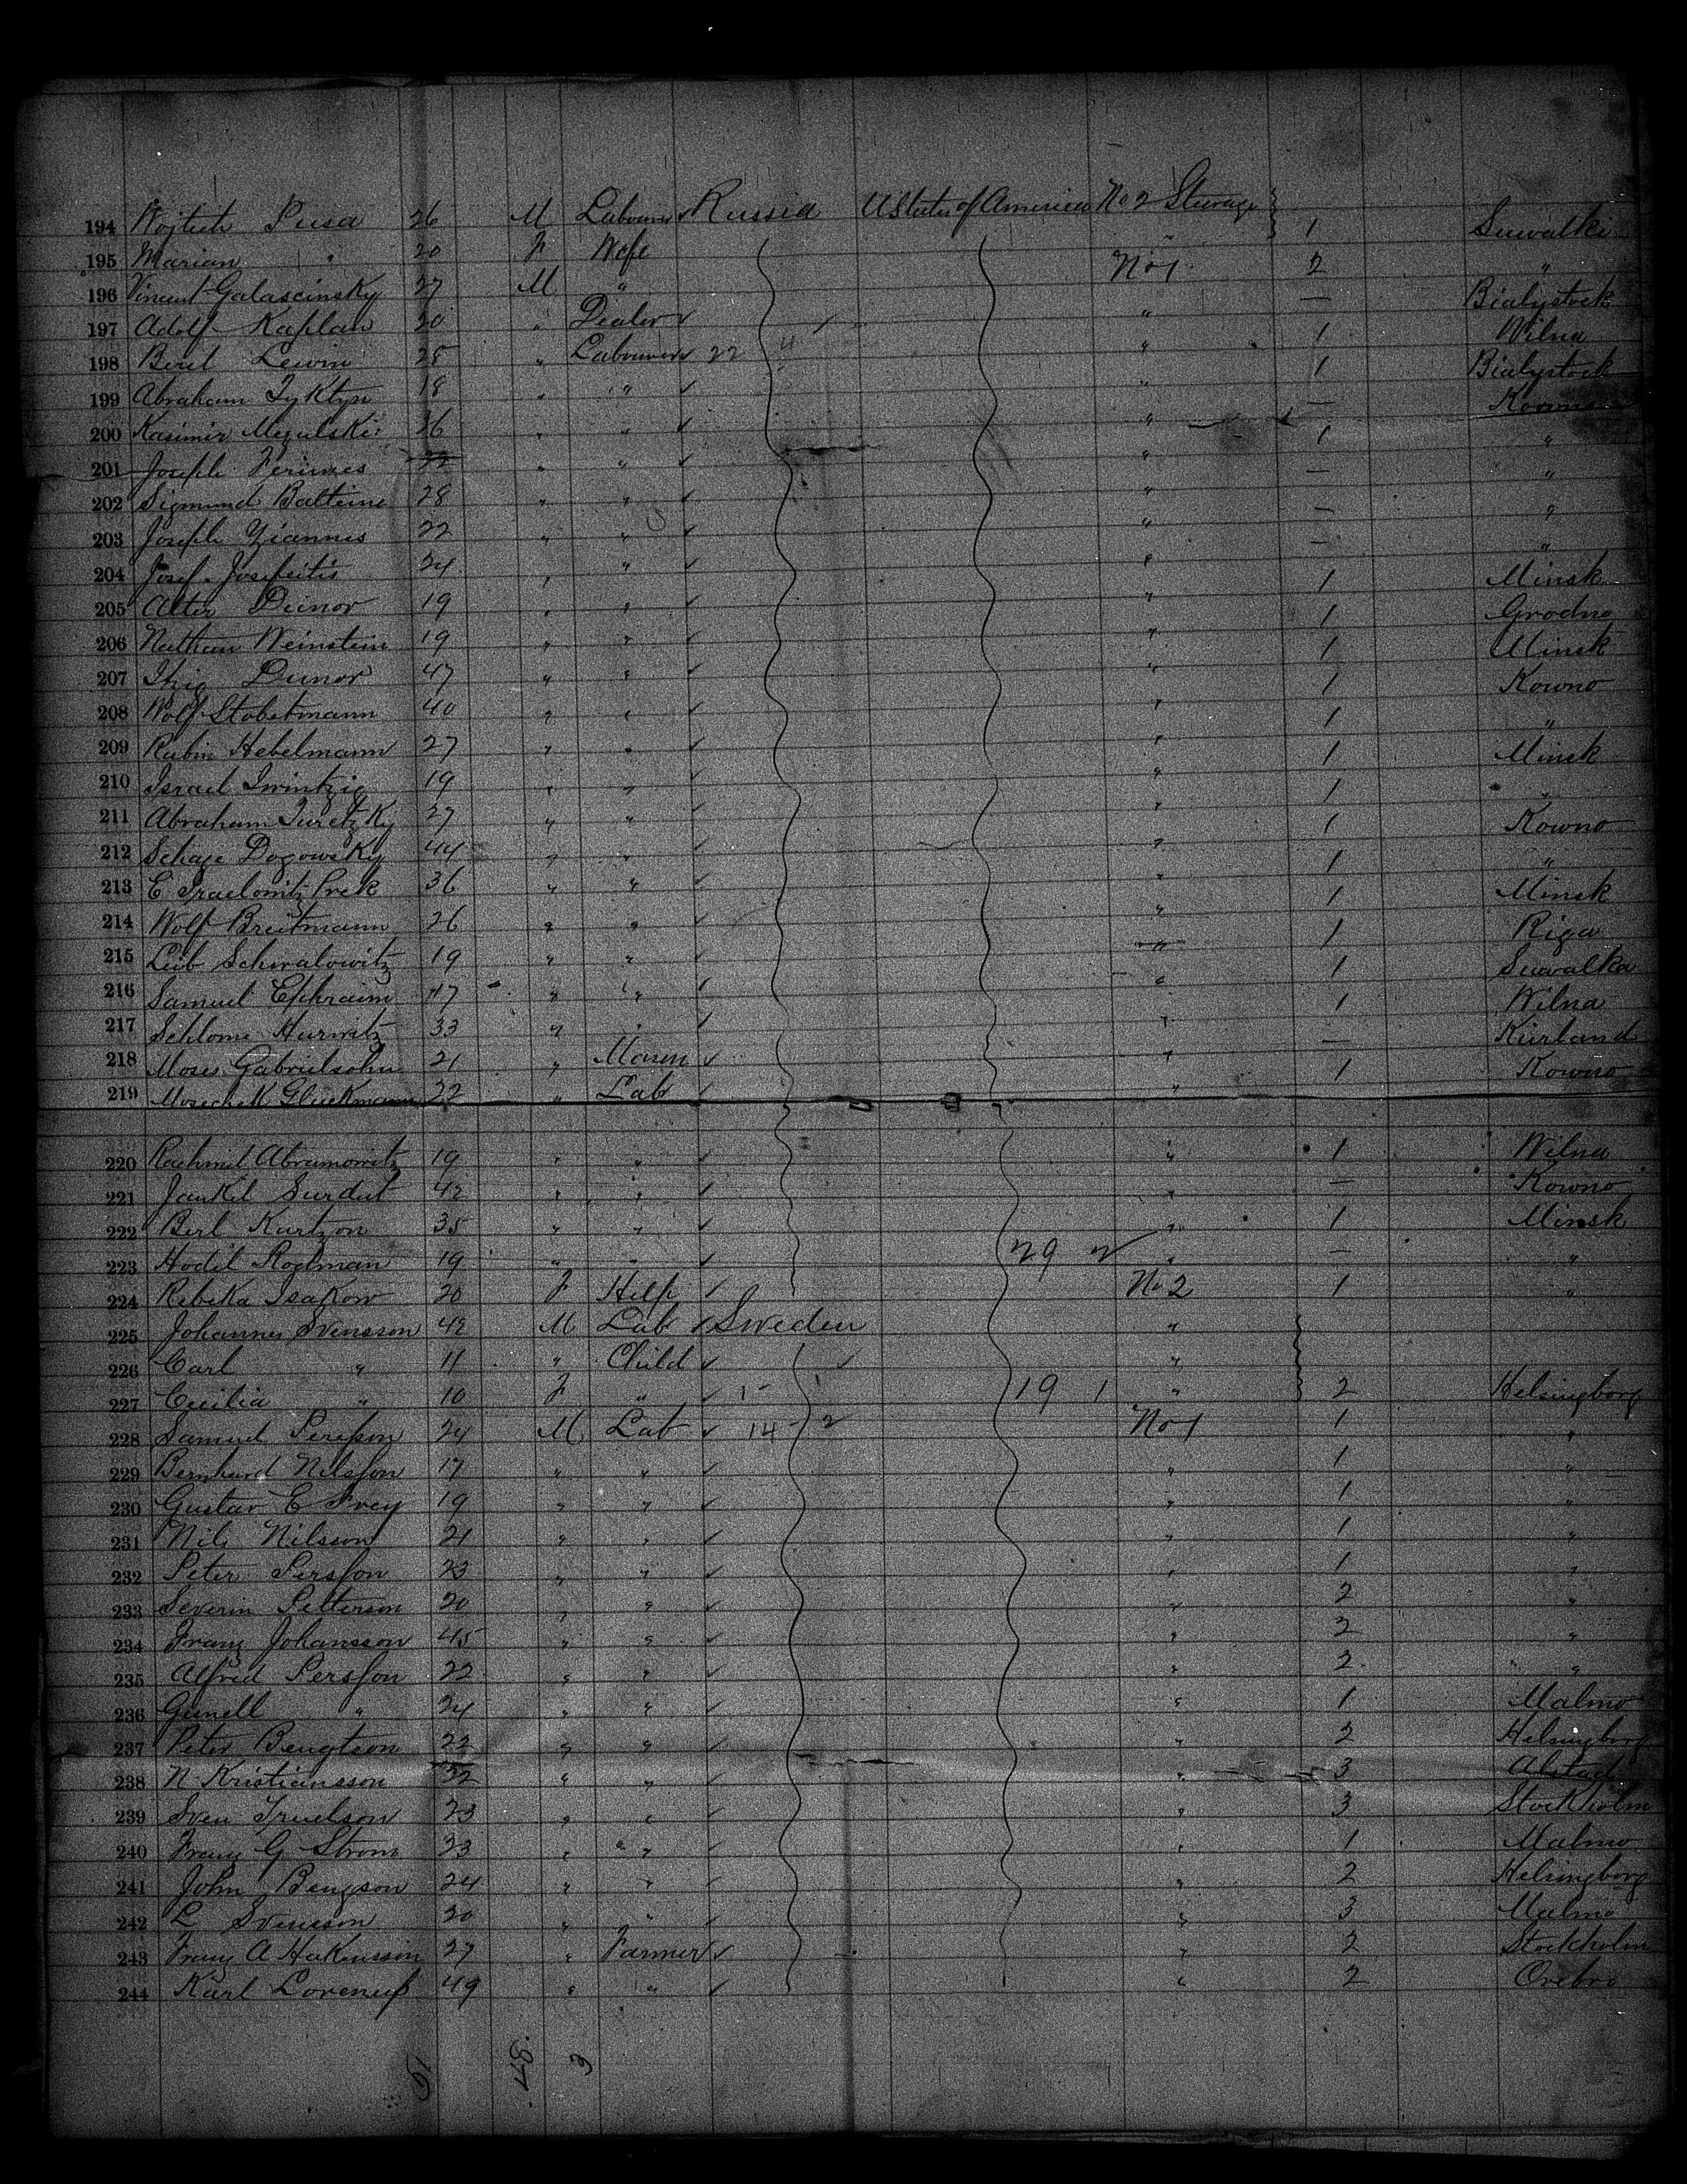 194 Wojtech Pusa 26 M Labourer Russia U States of America No 2 Steerage 1 Suwalki
195 Marian " 20 F Wife No 1 2 "
196 Vincent Galascinsky 27 M " " — Bialystock
197 Adolf Kaplan 20 " Dealer " 1 Wilna
198 Beril Lewin 25 " Labourer 22 " 1 Bialystock
199 Abraham Tyktyn 18 " " " — Kowno
200 Kasimir 36 " " " 1 "
201 Joseph " " " — "
202 Sigmund 28 " " " — "
203 Joseph 22 " " " — "
204 Josef Josefeitis 24 " " " 1 Minsk
205 Alter 19 " " " 1 Grodno
206 Nathan Weinstein 19 " " " 1 Minsk
207 Itzig 47 " " " 1 Kowno
208 Wolf Stobetmann 40 " " " 1 "
209 Rubin Hebelmann 27 " " " 1 Minsk
210 Israel 19 " " " 1 "
211 Abraham Turetzky 27 " " " 1 Kowno
212 Schaje Dogowsky 44 " " " 1 "
213 E 36 " " " 1 Minsk
214 Wolf Breitmann 26 " " " 1 Riga
215 Leib Schwalowitz 19 " " " 1 Suwalka
216 Samuel Ephraim 47 " " " 1 Wilna
217 Schlome Hurwitz 33 " " " — Kurland
218 Moses Gabrielsohn 21 " Mason " 1 Kowno
219 Moschek Gluckmann 22 " Lab "
220 Rachmil Abramowitz 19 " " " 1 Wilna
221 Jankel Surdut 42 " " " — Kowno
222 Berl Kurtzon 35 " " " 1 Minsk
223 Hodil Roglman 19 " " 29 2 " — "
224 Rebeka Isakow 20 F Help No 2 1 "
225 Johannes Svensson 42 M Lab Sweden "
226 Carl " 11 " Child "
227 Cecilia " 10 F " 1 19 1 " 2 Helsingborg
228 Samuel 24 M Lab 14 2 No 1 1 "
229 Bernhard Nilsson 17 " " " 1 "
230 Gustav E Frey 19 " " " 1 "
231 Nils Nilsson 21 " " " 1 "
232 Peter Persson 23 " " " 1 "
233 Severin Petterson 20 " " " 2 "
234 Franz Johansson 45 " " " 2 "
235 Alfred Persson 22 " " " 2 "
236 Gunell " 24 " " " 1 Malmo
237 Peter Bengtson 22 " " " 2 Helsingborg
238 N Kristiansson 32 " " " 3
239 Sven Truelson 23 " " " 3 Stockholm
240 Franz G Strom 23 " " " 1 Malmo
241 John Bengson 24 " " " 2 Helsingborg
242 L Svensson 20 " " " 3 Malmo
243 Franz A Hakansson 27 " Farmer " 2 Stockholm
244 Karl 49 " " " 2 Orebro